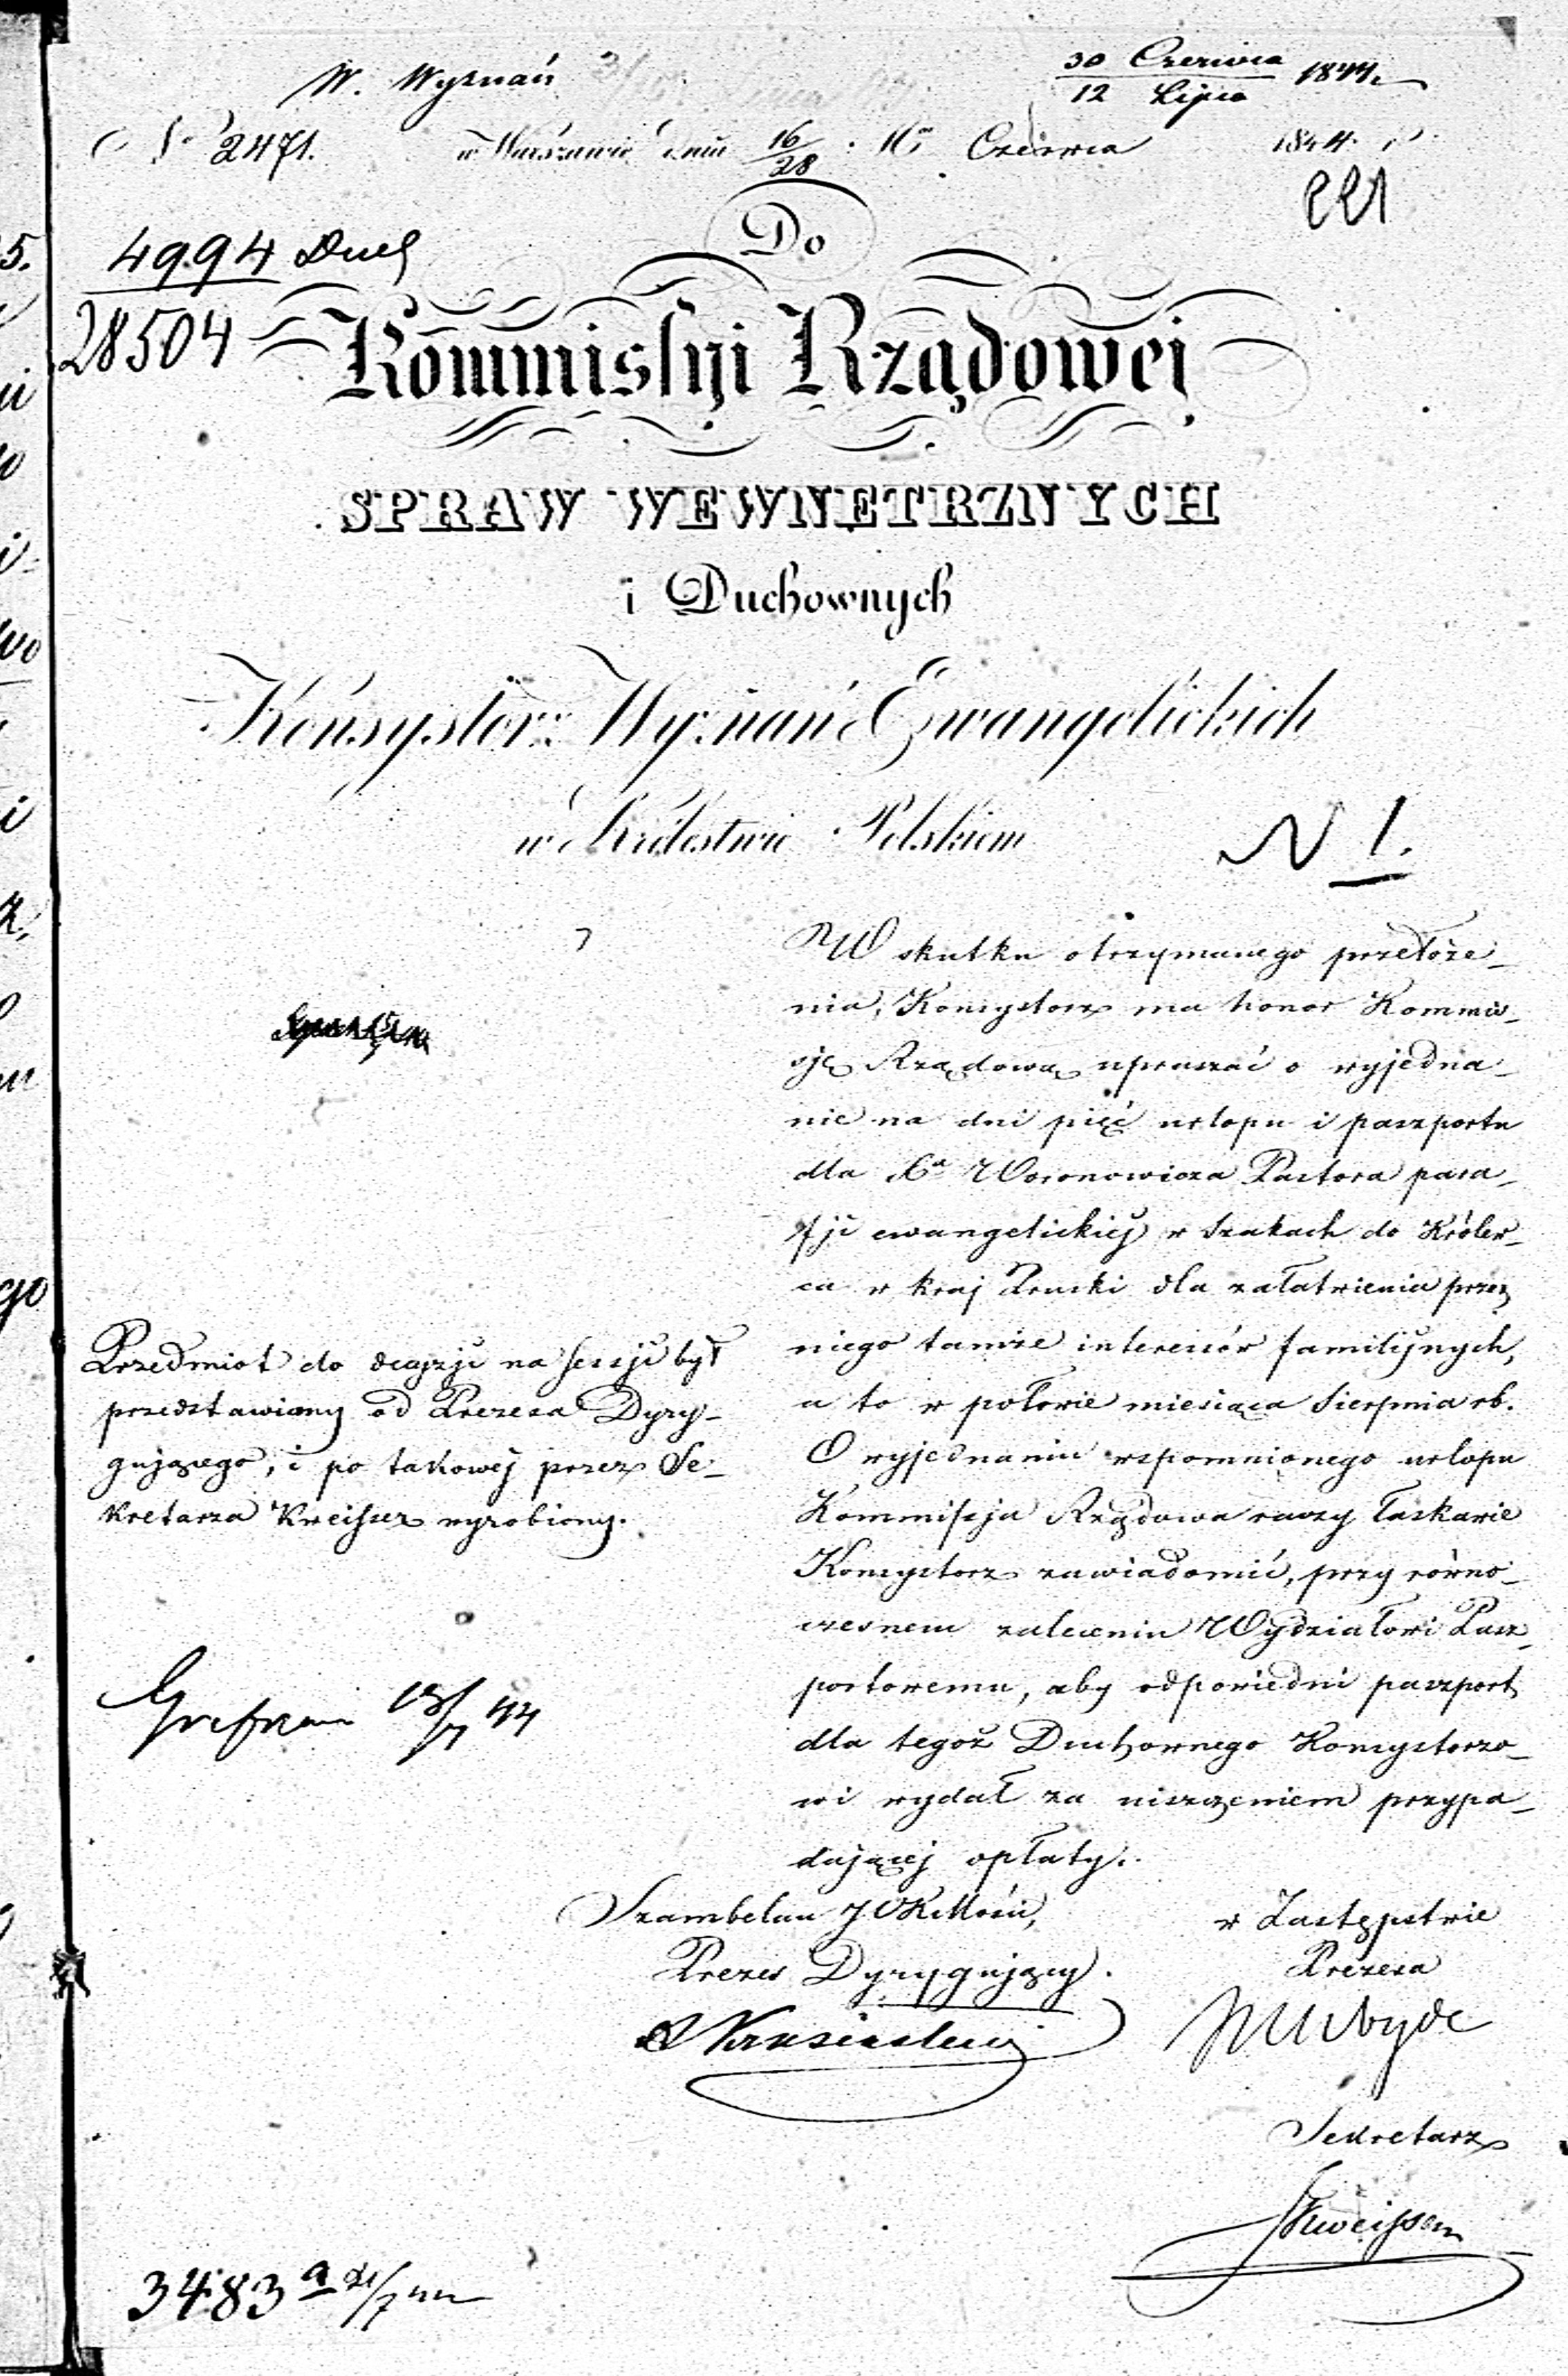 W. Wyznań
30 Czerwca 1844.
12 Lipca
No 2471. w Warszawie dnia 16/28 Czerwca 1844 r.
221
4994 Duch
28504
Do
Kommissyi Rządowej
SPRAW WEWNĘTRZNYCH
i Duchownych
Konsystorz Wyznań Ewangelickich
w Królestwie Polskiem
N 1.
W skutku otrzymanego przełoże-
nia, Konsystorz ma honor Kommis-
sję Rządową upraszać o wyjedna-
nie na dni pięć urlopu i paszportu
dla Xa Woronowicza Pastora para-
fji ewangelickiej w Szakach do Królew-
ca w kraj Pruski dla załatwienia przez
niego tamże interessów familijnych,
a to w połowie miesiąca Sierpnia rb.
O wyjednaniu wspomnionego urlopu
Kommissja Rządowa raczy łaskawie
Konsystorz zawiadomić, przy równo-
czesnem zaleceniu Wydziałowi Pasz-
portowemu, aby odpowiedni paszport
dla tegoż Duchownego Konsystorzo-
wi wydał za uiszczeniem przypa-
dającej opłaty.
Przedmiot do decyzji na sessji był
przedstawiony od Prezesa Dyry-
gującego, i po takowej przez Se-
kretarza Kweisser wyrobiony.
Szambelan JCKMości,
Prezes Dyrygujący.
w Zastępstwie
Prezesa
Sekretarz
Kweisser
3483